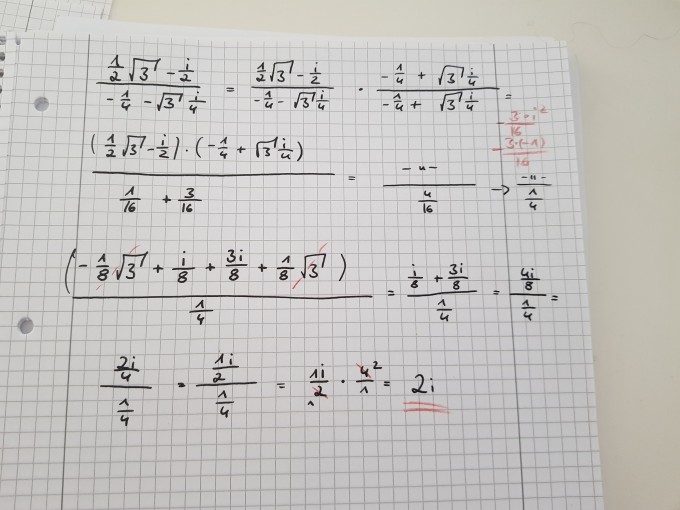 (1/2 √3 - i/2)/(-1/4 - √3 i/4) = (1/2 √3 - i/2)/(-1/4 - √3 i/4) · (-1/4 + √3 i/4)/(-1/4 + √3 i/4) =
- 3·i²/16
- 3·(-1)/16
((1/2 √3 - i/2) · (-1/4 + √3 i/4))/(1/16 + 3/16) = (-"-)/(4/16) -> (-"-)/(1/4)
(-1/8 √3 + i/8 + 3i/8 + 1/8 √3)/(1/4) = (i/8 + 3i/8)/(1/4) = (4i/8)/(1/4) =
(2i/4)/(1/4) = (1i/2)/(1/4) = 1i/2 1 · 4 2/1 = 2i